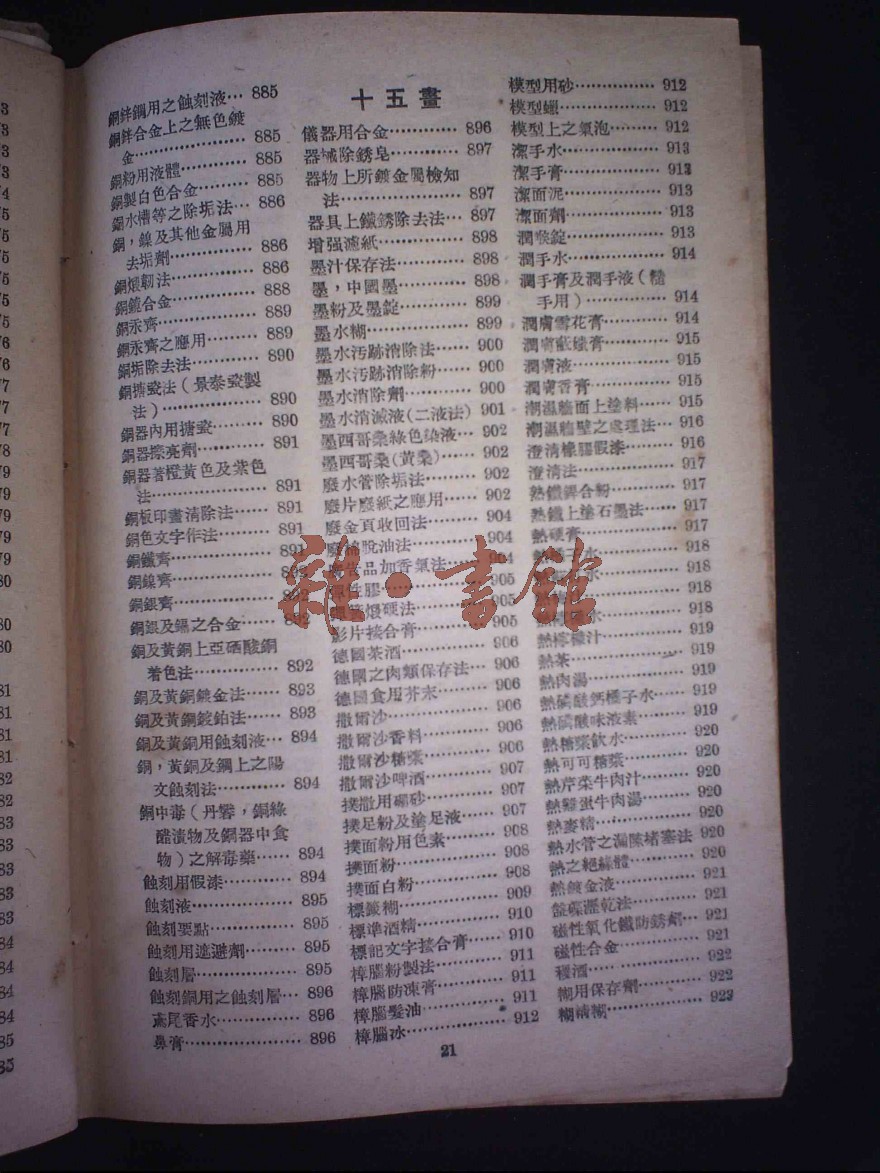 銅鋅鋼用之蝕刻液… 885
銅鋅合金上之無色鍍
金…………… 885
銅粉用液體……… 885
銅製白色合金…… 885
銅水槽等之除垢法… 886
銅，鎳及其他金屬用
去垢劑………… 886
銅煨韌法………… 886
銅鏡合金………… 888
銅汞齊…………… 889
銅汞齊之應用…… 889
銅垢除去法……… 890
銅搪瓷法（景泰瓷製
法）…………… 890
銅器內用搪瓷…… 890
銅器擦亮劑……… 891
銅器著橙黃色及紫色
法……………… 891
銅板印畫清除法… 891
銅色文字作法…… 891
銅鐵齊…………… 891
銅鎳齊…………… 892
銅銀齊…………… 892
銅銀及錫之合金… 892
銅及黃銅上亞硒酸銅
着色法………… 892
銅及黃銅鍍金法… 893
銅及黃銅鍍鉑法… 893
銅及黃銅用蝕刻液… 894
銅，黃銅及鋼上之陽
文蝕刻法……… 894
銅中毒（丹礬，銅綠
醋漬物及銅器中食
物）之解毒藥… 894
蝕刻用假漆……… 894
蝕刻液…………… 895
蝕刻要點………… 895
蝕刻用遮避劑…… 895
蝕刻層…………… 895
蝕刻銅用之蝕刻層… 896
鳶尾香水………… 896
鼻膏……………… 896
十五畫
儀器用合金……… 896
器械除銹皂……… 897
器物上所鍍金屬檢知
法……………… 897
器具上鐵銹除去法… 897
增强濾紙………… 898
墨汁保存法……… 898
墨，中國墨……… 898
墨粉及墨錠……… 899
墨水糊…………… 899
墨水污跡消除法… 900
墨水污跡消除粉… 900
墨水消除劑……… 900
墨水消滅液（二液法） 901
墨西哥桑綠色染液… 902
墨西哥桑（黃桑）… 902
廢水管除垢法…… 902
廢片廢紙之應用… 902
廢金頁收回法…… 904
廢棉脫油法……… 904
品加香氣法… 904
彈性膠…………… 905
煨硬法… 905
影片接合膏……… 905
德國茶酒………… 906
德國之肉類保存法… 906
德國食用芥末…… 906
撒爾沙…………… 906
撒爾沙香料……… 906
撒爾沙糖漿……… 906
撒爾沙啤酒……… 907
撲撒用硼砂……… 907
撲足粉及塗足液… 907
撲面粉用色素…… 908
撲面粉…………… 908
撲面白粉………… 908
標籤糊…………… 909
標準酒精………… 910
標記文字接合膏… 910
樟腦粉製法……… 911
樟腦防凍膏……… 911
樟腦髮油………… 911
樟腦冰…………… 912
模型用砂………… 912
模型蠟…………… 912
模型上之氣泡…… 912
潔手水…………… 913
潔手膏…………… 913
潔面泥…………… 913
潔面劑…………… 913
潤喉錠…………… 913
潤手水…………… 914
潤手膏及潤手液（
手用）………… 914
潤膚雪花膏……… 914
潤膚蠟膏……… 915
潤膚液…………… 915
潤膚香膏………… 915
潮濕牆面上塗料… 915
潮濕牆壁之處理法… 916
澄清橡膠假漆…… 916
澄清法…………… 917
熱鐵銲合粉……… 917
熱鐵上塗石墨法… 917
熱硬膏…………… 917
水… 918
水… 918
水… 918
熱檸檬汁………… 919
熱茶……………… 919
熱肉湯…………… 919
熱磷酸鈣橙子水… 919
熱磷酸味液素…… 919
熱糖漿飲水……… 920
熱可可糖漿……… 920
熱芹菜牛肉汁…… 920
熱雞蛋牛肉湯…… 920
熱麥精…………… 920
熱水管之漏隙堵塞法 920
熱之絕緣體……… 920
熱鍍金液………… 921
盤碟瀝乾法……… 921
磁性氧化鐵防銹劑… 921
磁性合金………… 922
稷酒……………… 922
糊用保存劑……… 922
糊精糊…………… 923
21
雜·書館